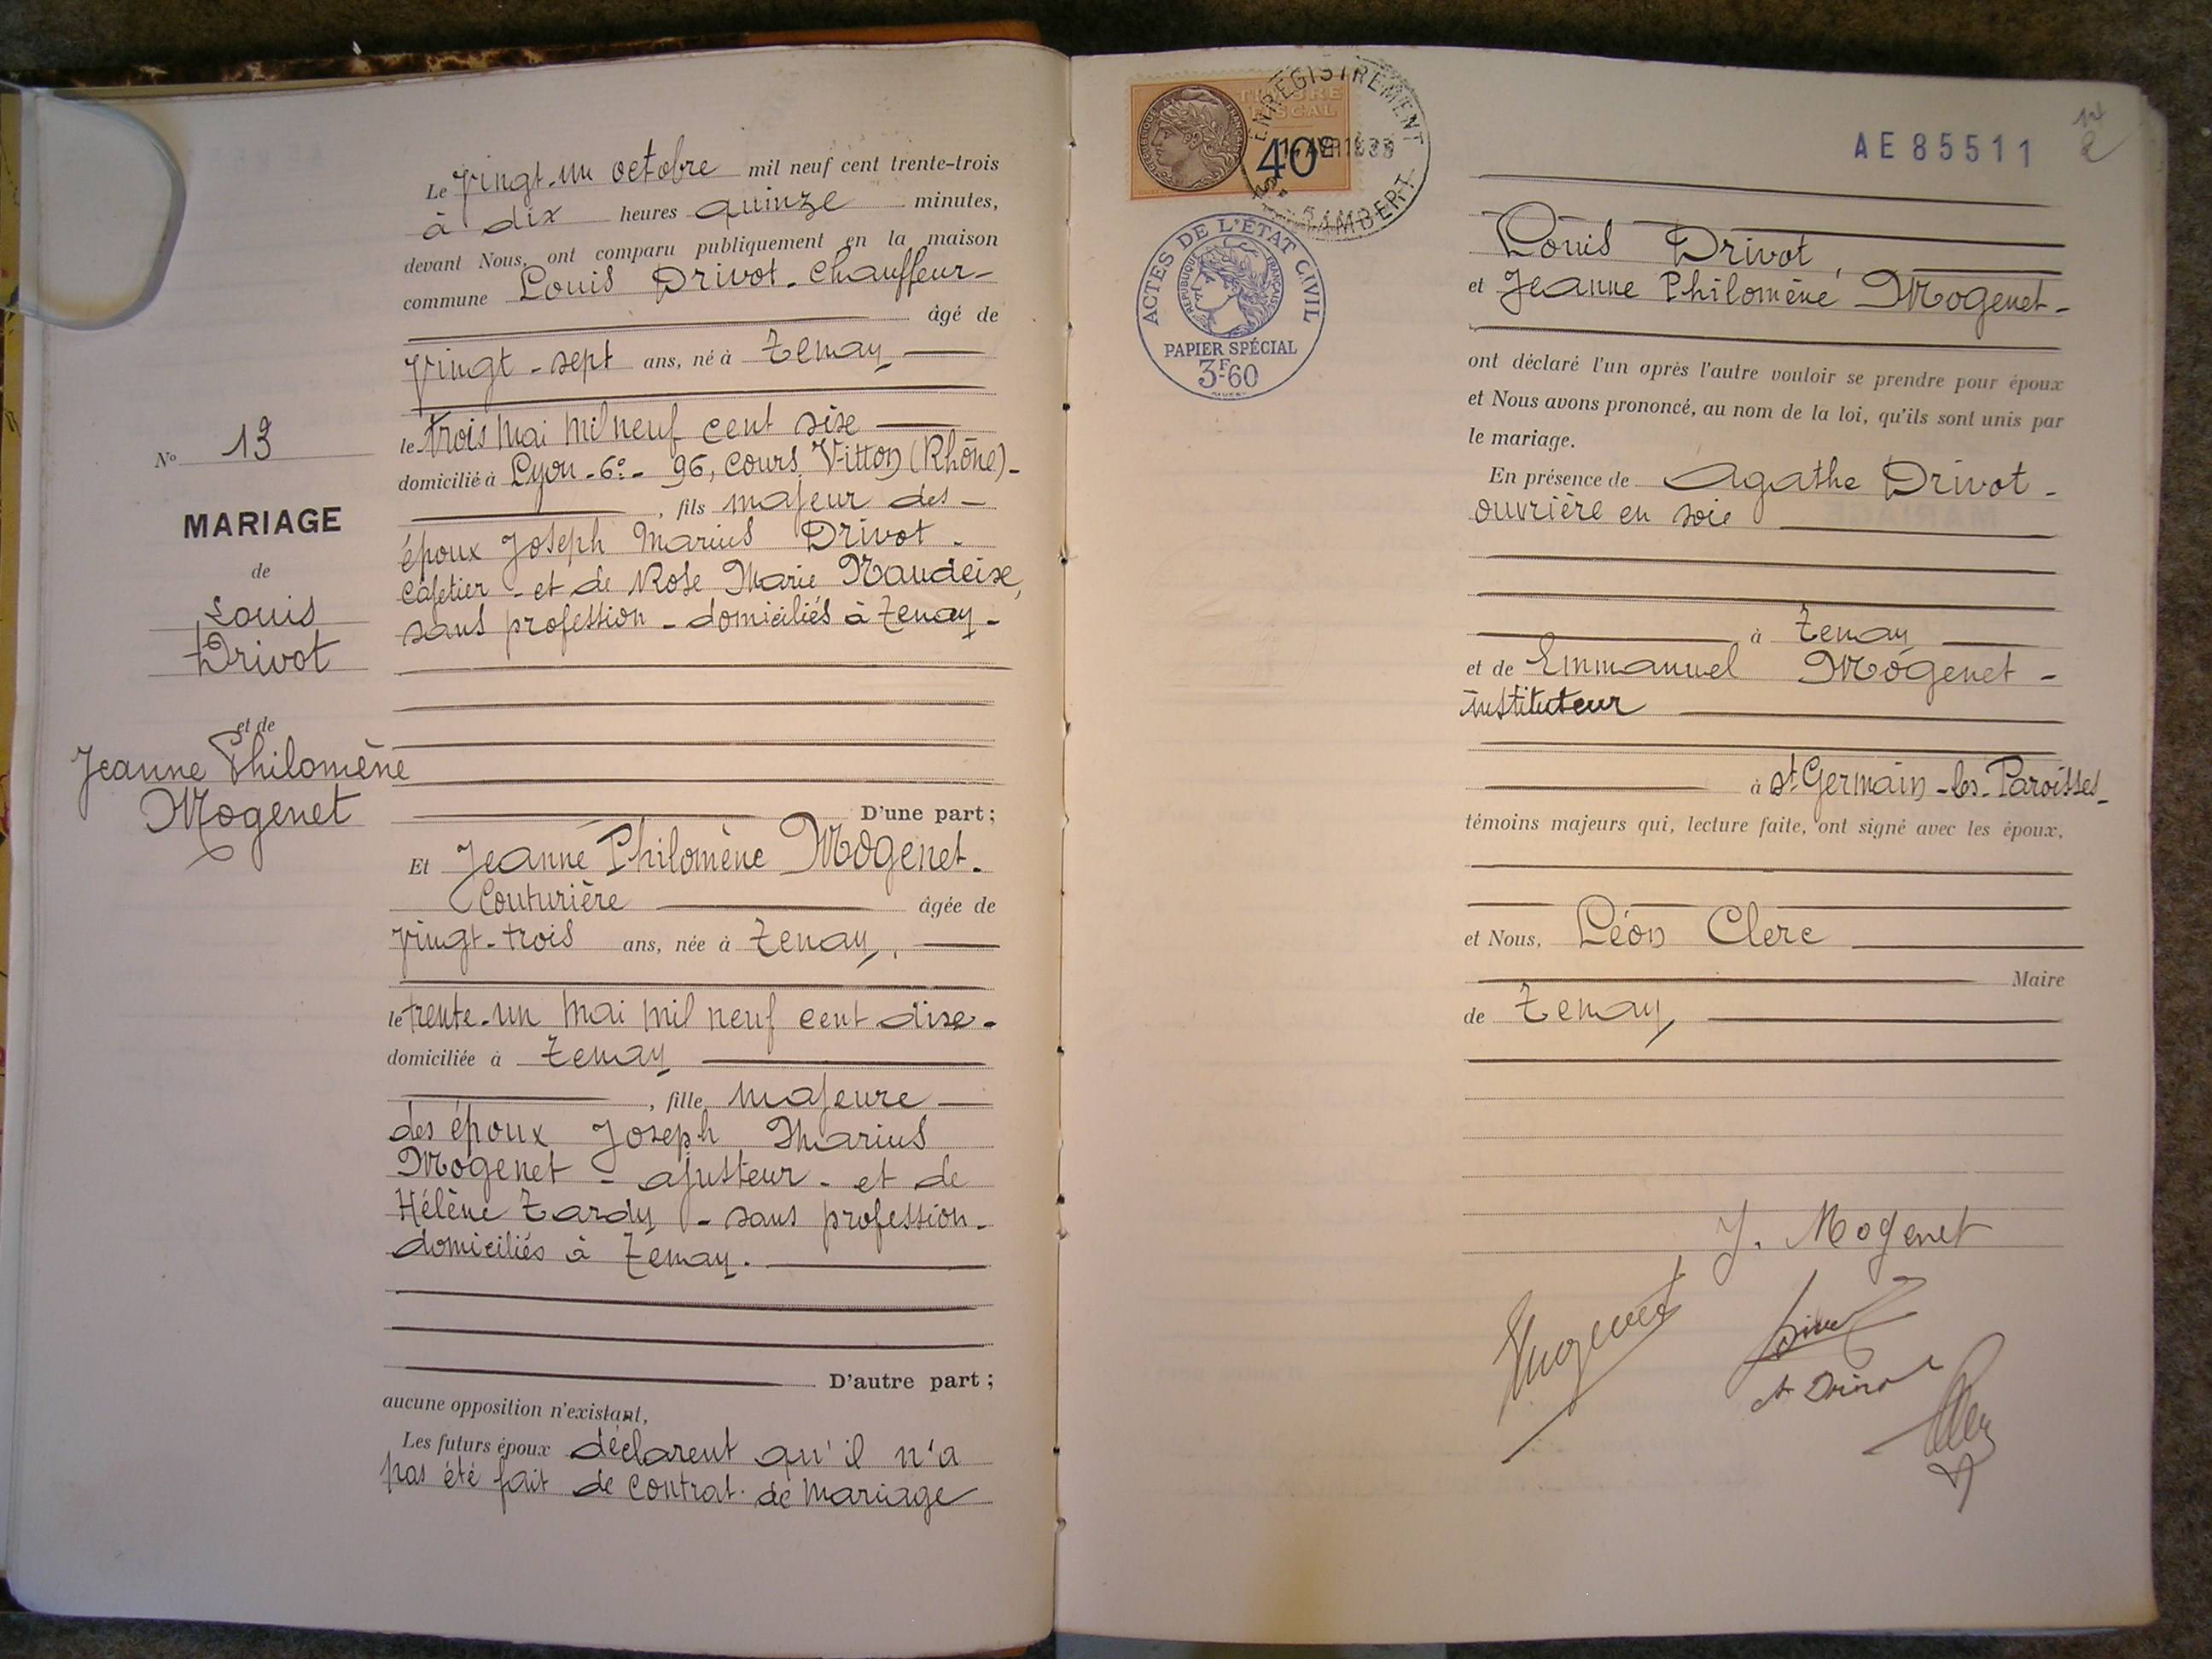 Le vingt-un octobre mil neuf cent trente-trois
à dix heures quinze minutes,
devant Nous, ont comparu publiquement en la maison
commune Louis Drivot - chauffeur -
âgé de
vingt-sept ans, né à Tenay
le trois mai mil neuf cent six
domicilié à Lyon-6e- 96, cours Vitton (Rhône)-
, fils majeur des -
époux Joseph Marius Drivot -
cafetier - et de Rose Marie
sans profession - domiciliés à Tenay -
D'une part;
Nº 13
MARIAGE
de
Louis
Drivot
et de
Jeanne Philomène
Mogenet
Et Jeanne Philomène Mogenet -
Couturière âgée de
vingt-trois ans, née à Tenay,
le trente-un mai mil neuf cent dix -
domiciliée à Tenay
, fille majeure
des époux Joseph Marius
Mogenet - ajusteur - et de
Hélène Tardy - sans profession -
domiciliés à Tenay.
D'autre part;
aucune opposition n'existant,
Les futurs époux déclarent qu'il n'a
pas été fait de contrat de mariage
TIMBRE
FISCAL
40
ENREGISTREMENT
ACTES DE L'ÉTAT CIVIL
RÉPUBLIQUE FRANÇAISE
PAPIER SPÉCIAL
3F60
AE 85511
Louis Drivot,
et Jeanne Philomène Mogenet -
ont déclaré l'un après l'autre vouloir se prendre pour époux
et Nous avons prononcé, au nom de la loi, qu'ils sont unis par
le mariage.
En présence de Agathe Drivot -
ouvrière en soie
à Tenay
et de Emmanuel Mogenet -
instituteur
à St Germain-les-Paroisses -
témoins majeurs qui, lecture faite, ont signé avec les époux,
et Nous, Léon Clerc
Maire
de Tenay
J. Mogenet
Mogenet
A Drivot